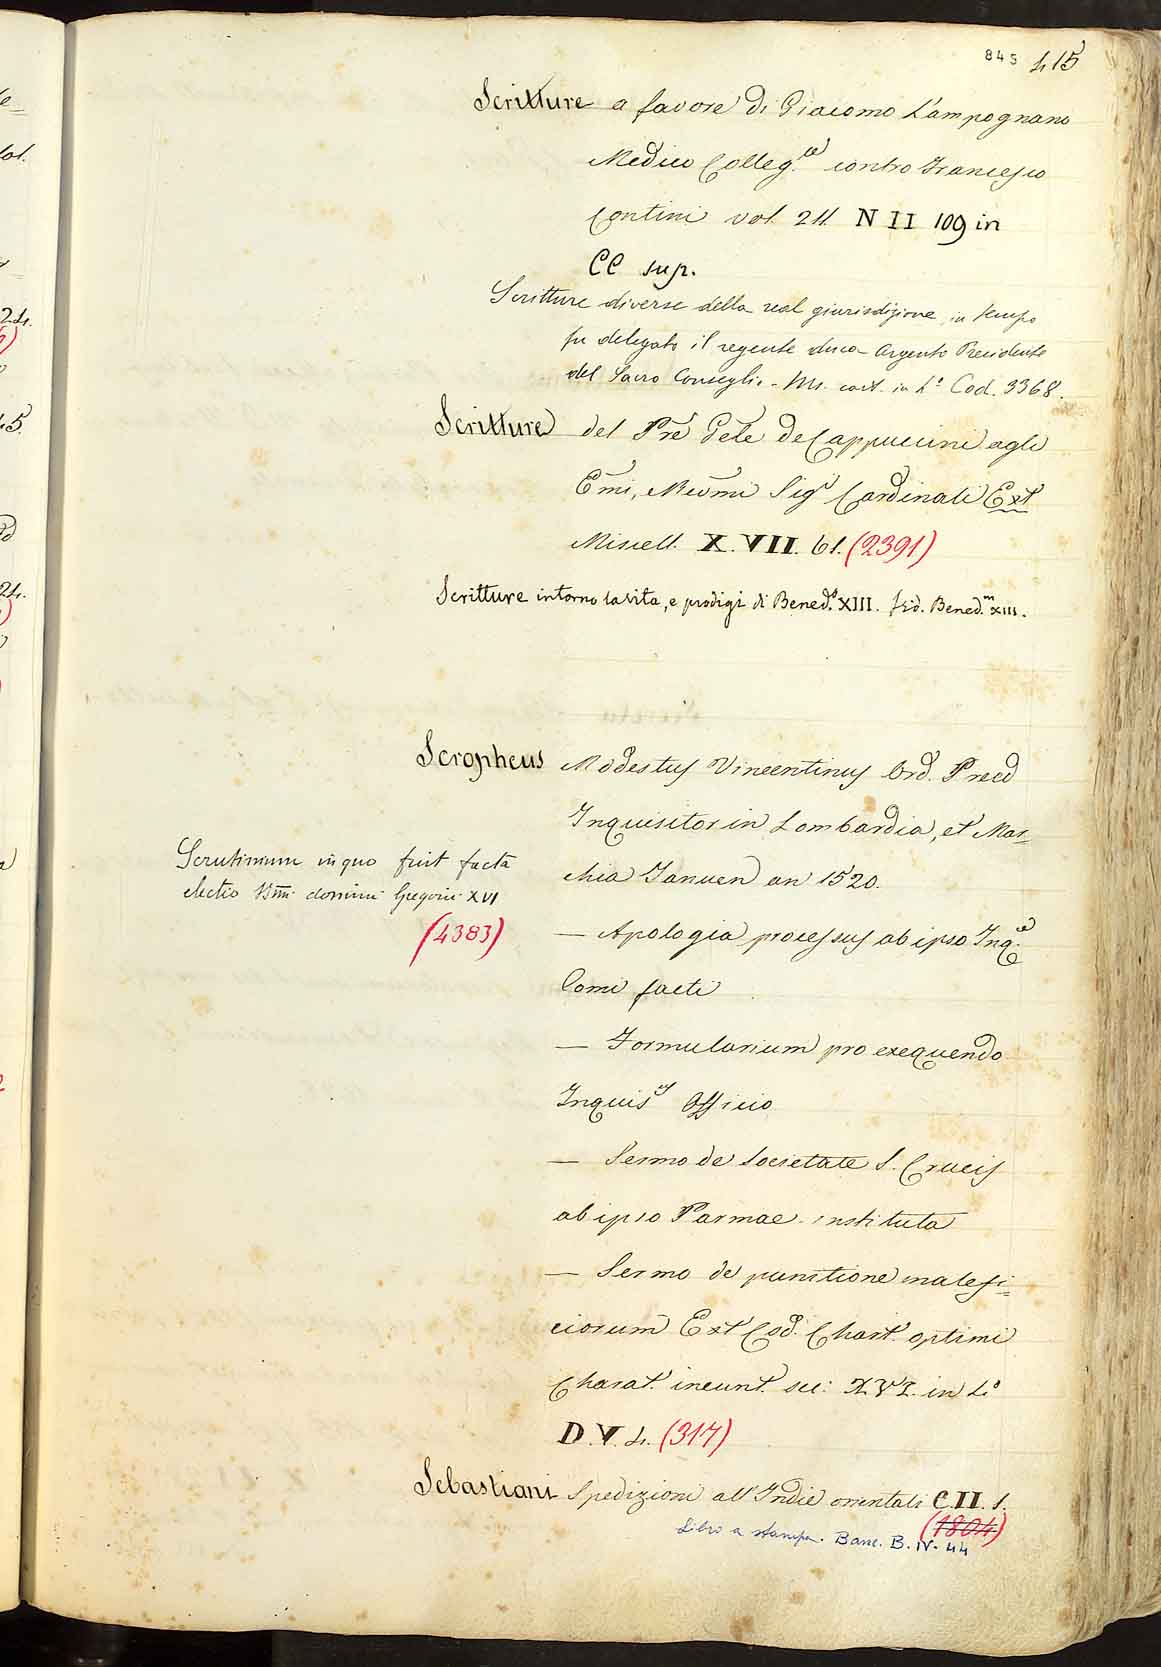 845 415
Scritture a favore di Giacomo Lampognano
Medico Colleg.to contro Francesco
Contini vol. 211 N II 109 in
CC sup.
Scritture diverse della real giurisdizione in tempo
fu delegato il regente duca Argento Presidente
del Sacro Conseglio - Ms. cart. in 4º Cod. 3368.
Scritture del Prē Gēle de Cappuccini agli
Em̄i, Reūmi Sigri Cardinali Ext
Miscell. X. VII. 61. (2391)
Scritture intorno la vita, e prodigi di Bened.º XIII. Vid. Bened.m XIII.
Scropheus Modestus Vincentinus Ord. Pred
Inquisitor in Lombardia, et Mar=
chia Januen an 1520.
Scrutinium in quo fuit facta
electio Ssmi domini Gregorii XVI
(4383)
— Apologia processus ab ipso Inq.e
Comi facti
— Formularium pro exequendo
Inquis.is Officio
— Sermo de societate S. Crucis
ab ipso Parmae instituta
— Sermo de punitione malefi=
ciorum Ext Cod. Chart. optimi
Charat. ineunt. sec: XVI. in 4º
D. V. 4. (317)
Sebastiani Spedizioni all'Indie orientali C. II. 1.
(1804)
Libro a stampa. Banc. B. IV. 44